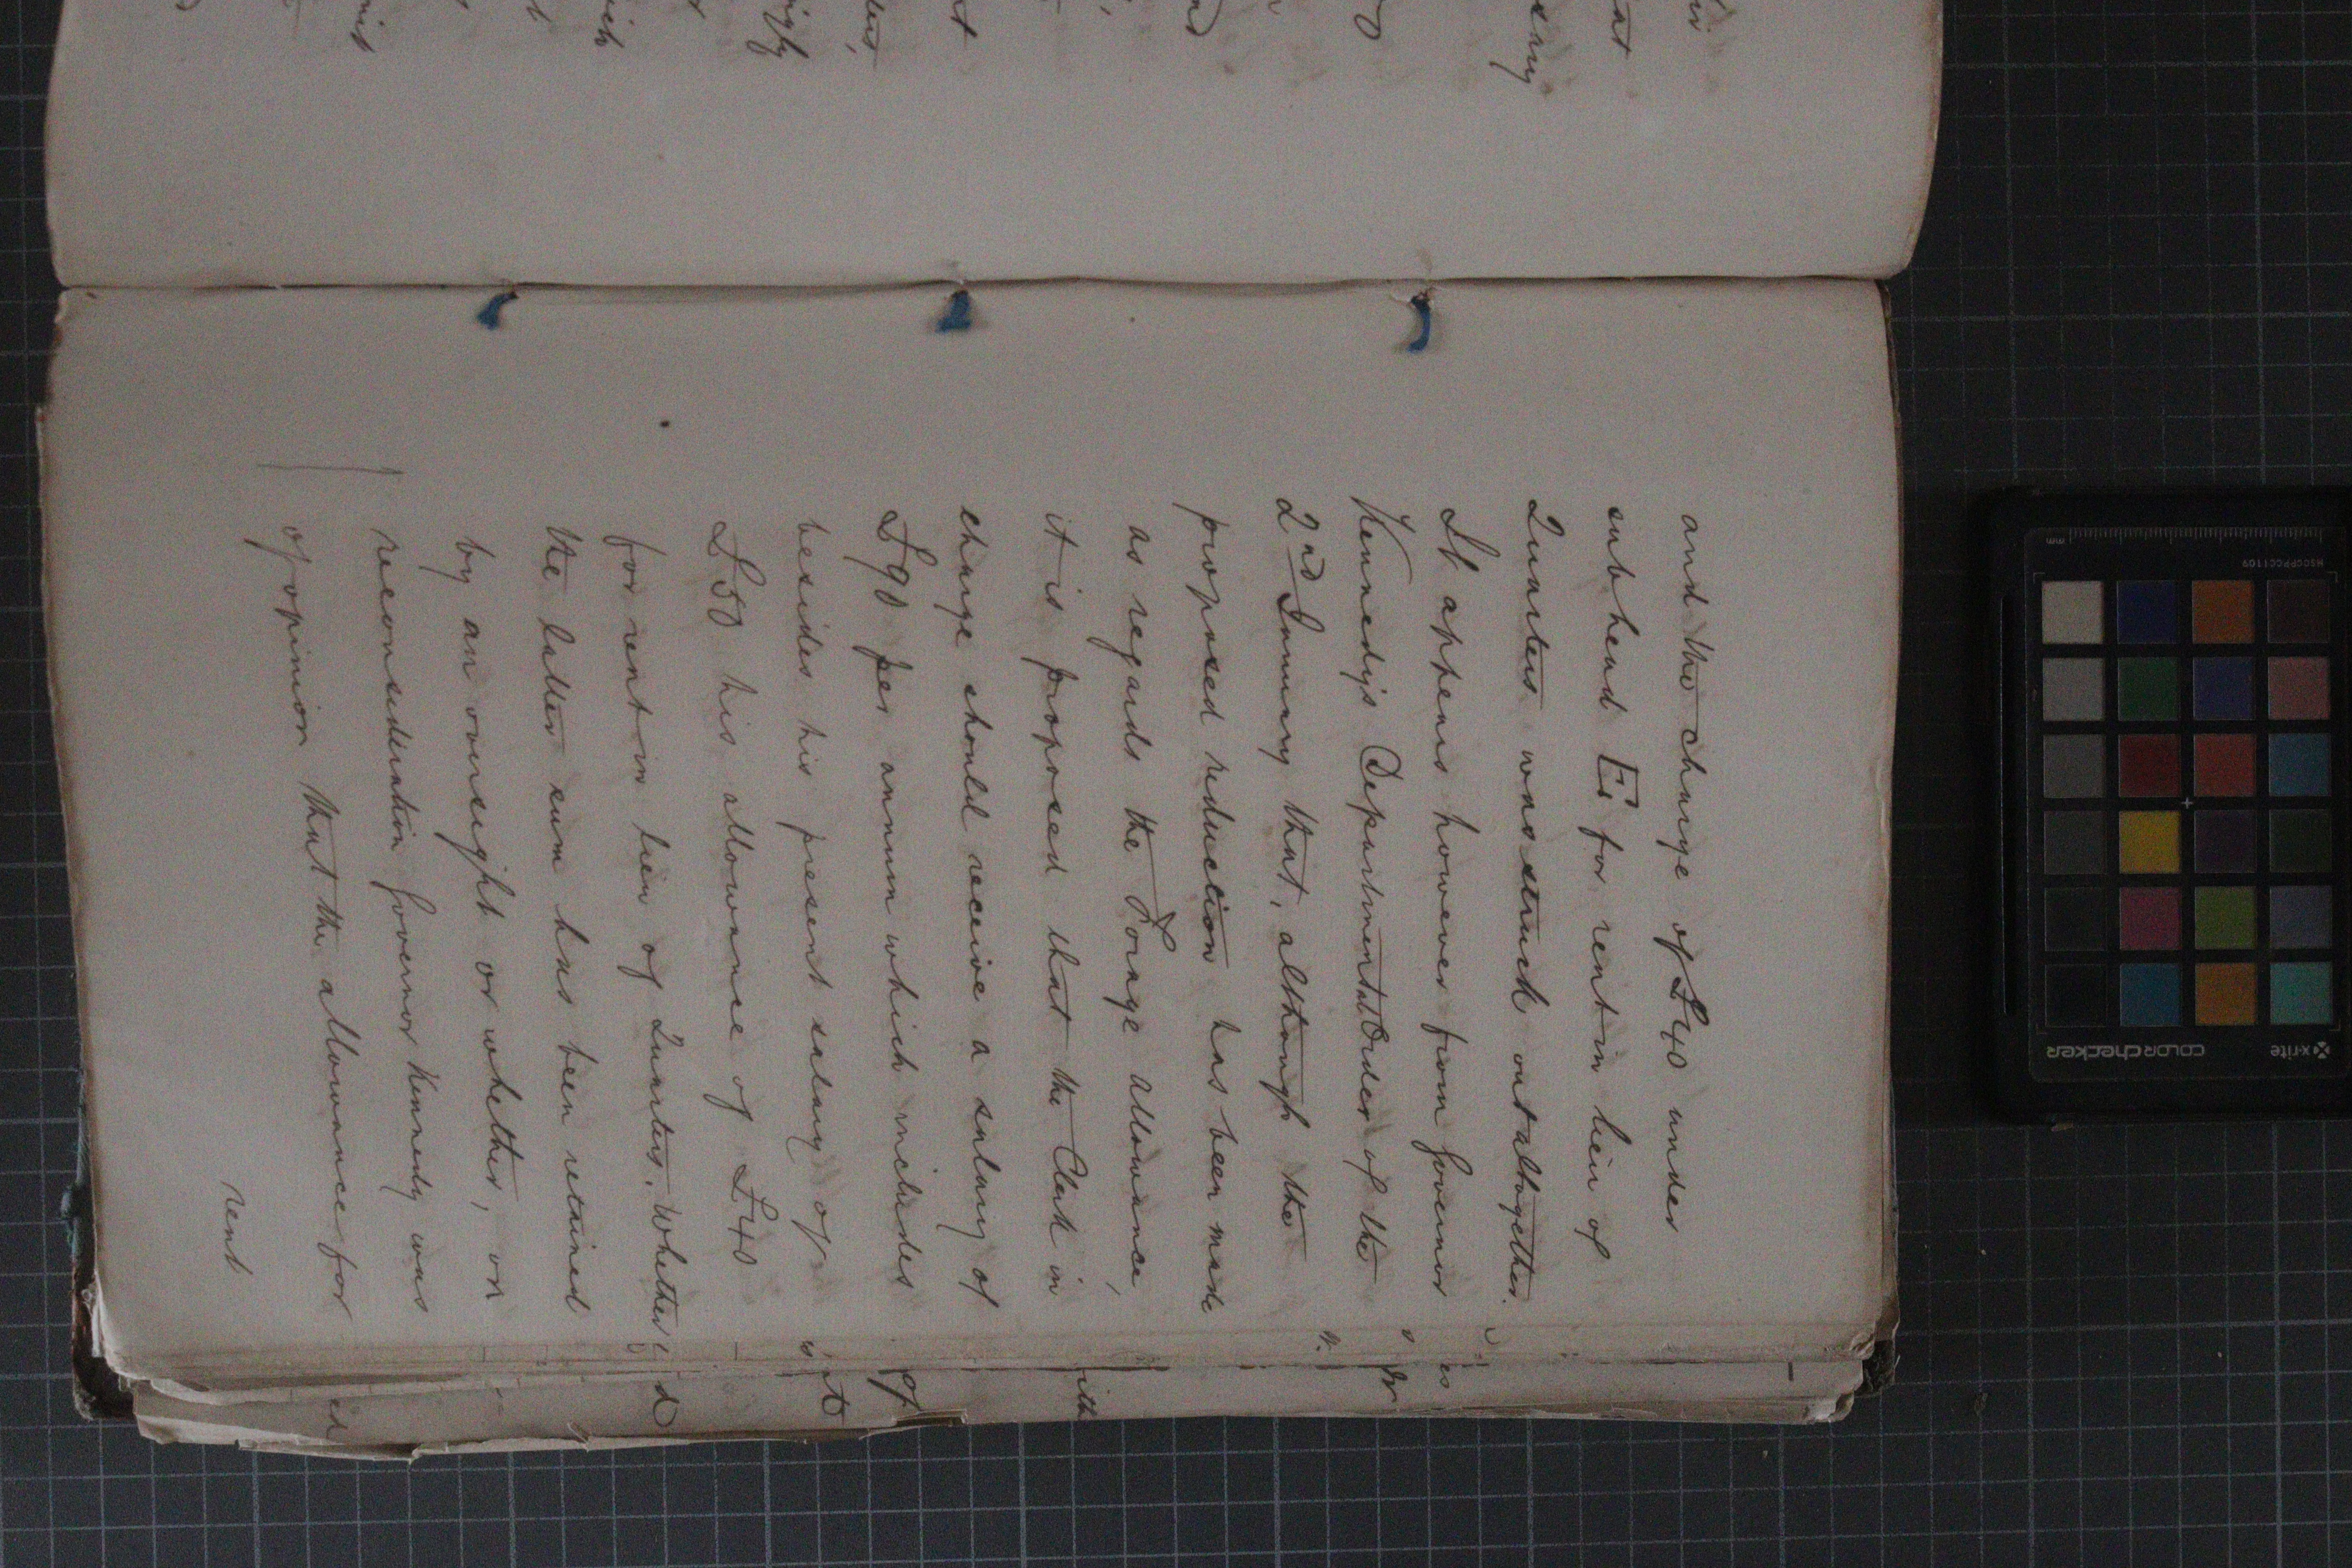 and the charge of £40 under
subhead E. for rent in lieu of
Quarters was struck out altogether.
It appears however from Governor
Kennedy's Departmental Order of the
2nd January that, although the
proposed reduction has been made
as regards the Forage allowance,
it is proposed that the Clerk in
charge should receive a salary of
£90 per annum which includes
besides his present salary of
£50 his allowance of £40
for rent in lieu of Quarters. Whether
the latter sum has been retained
by an oversight or whether, on
reconsideration Governor Kennedy was
of opinion that the allowance for
rent